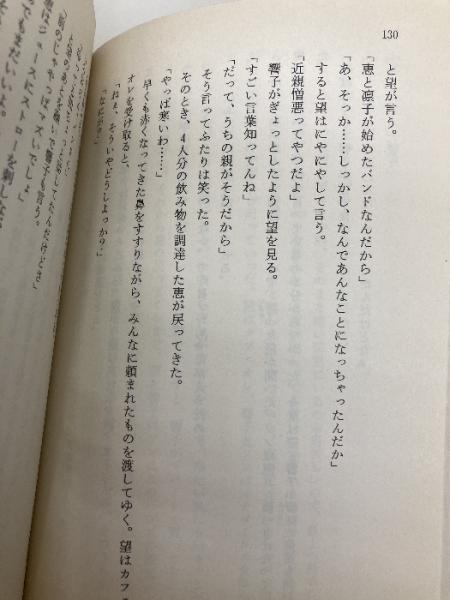 130
と望が言う。
「恵と凛子が始めたバンドなんだから」
「あ、そっか……しっかし、なんであんなことになっちゃったんだか」
すると望はにやにやして言う。
「近親憎悪ってやつだよ」
響子がぎょっとしたように望を見る。
「すごい言葉知ってんね」
「だって、うちの親がそうだから」
そう言ってふたりは笑った。
そのとき、4人分の飲み物を調達した恵が戻ってきた。
「やっぱ寒いわ……」
早くも赤くなってきた鼻をすすりながら、みんなに頼まれたものを渡してゆく。望はカフェ
オレを受け取ると、
「ねぇ、そういやどうしよっか？」
「なにが？」